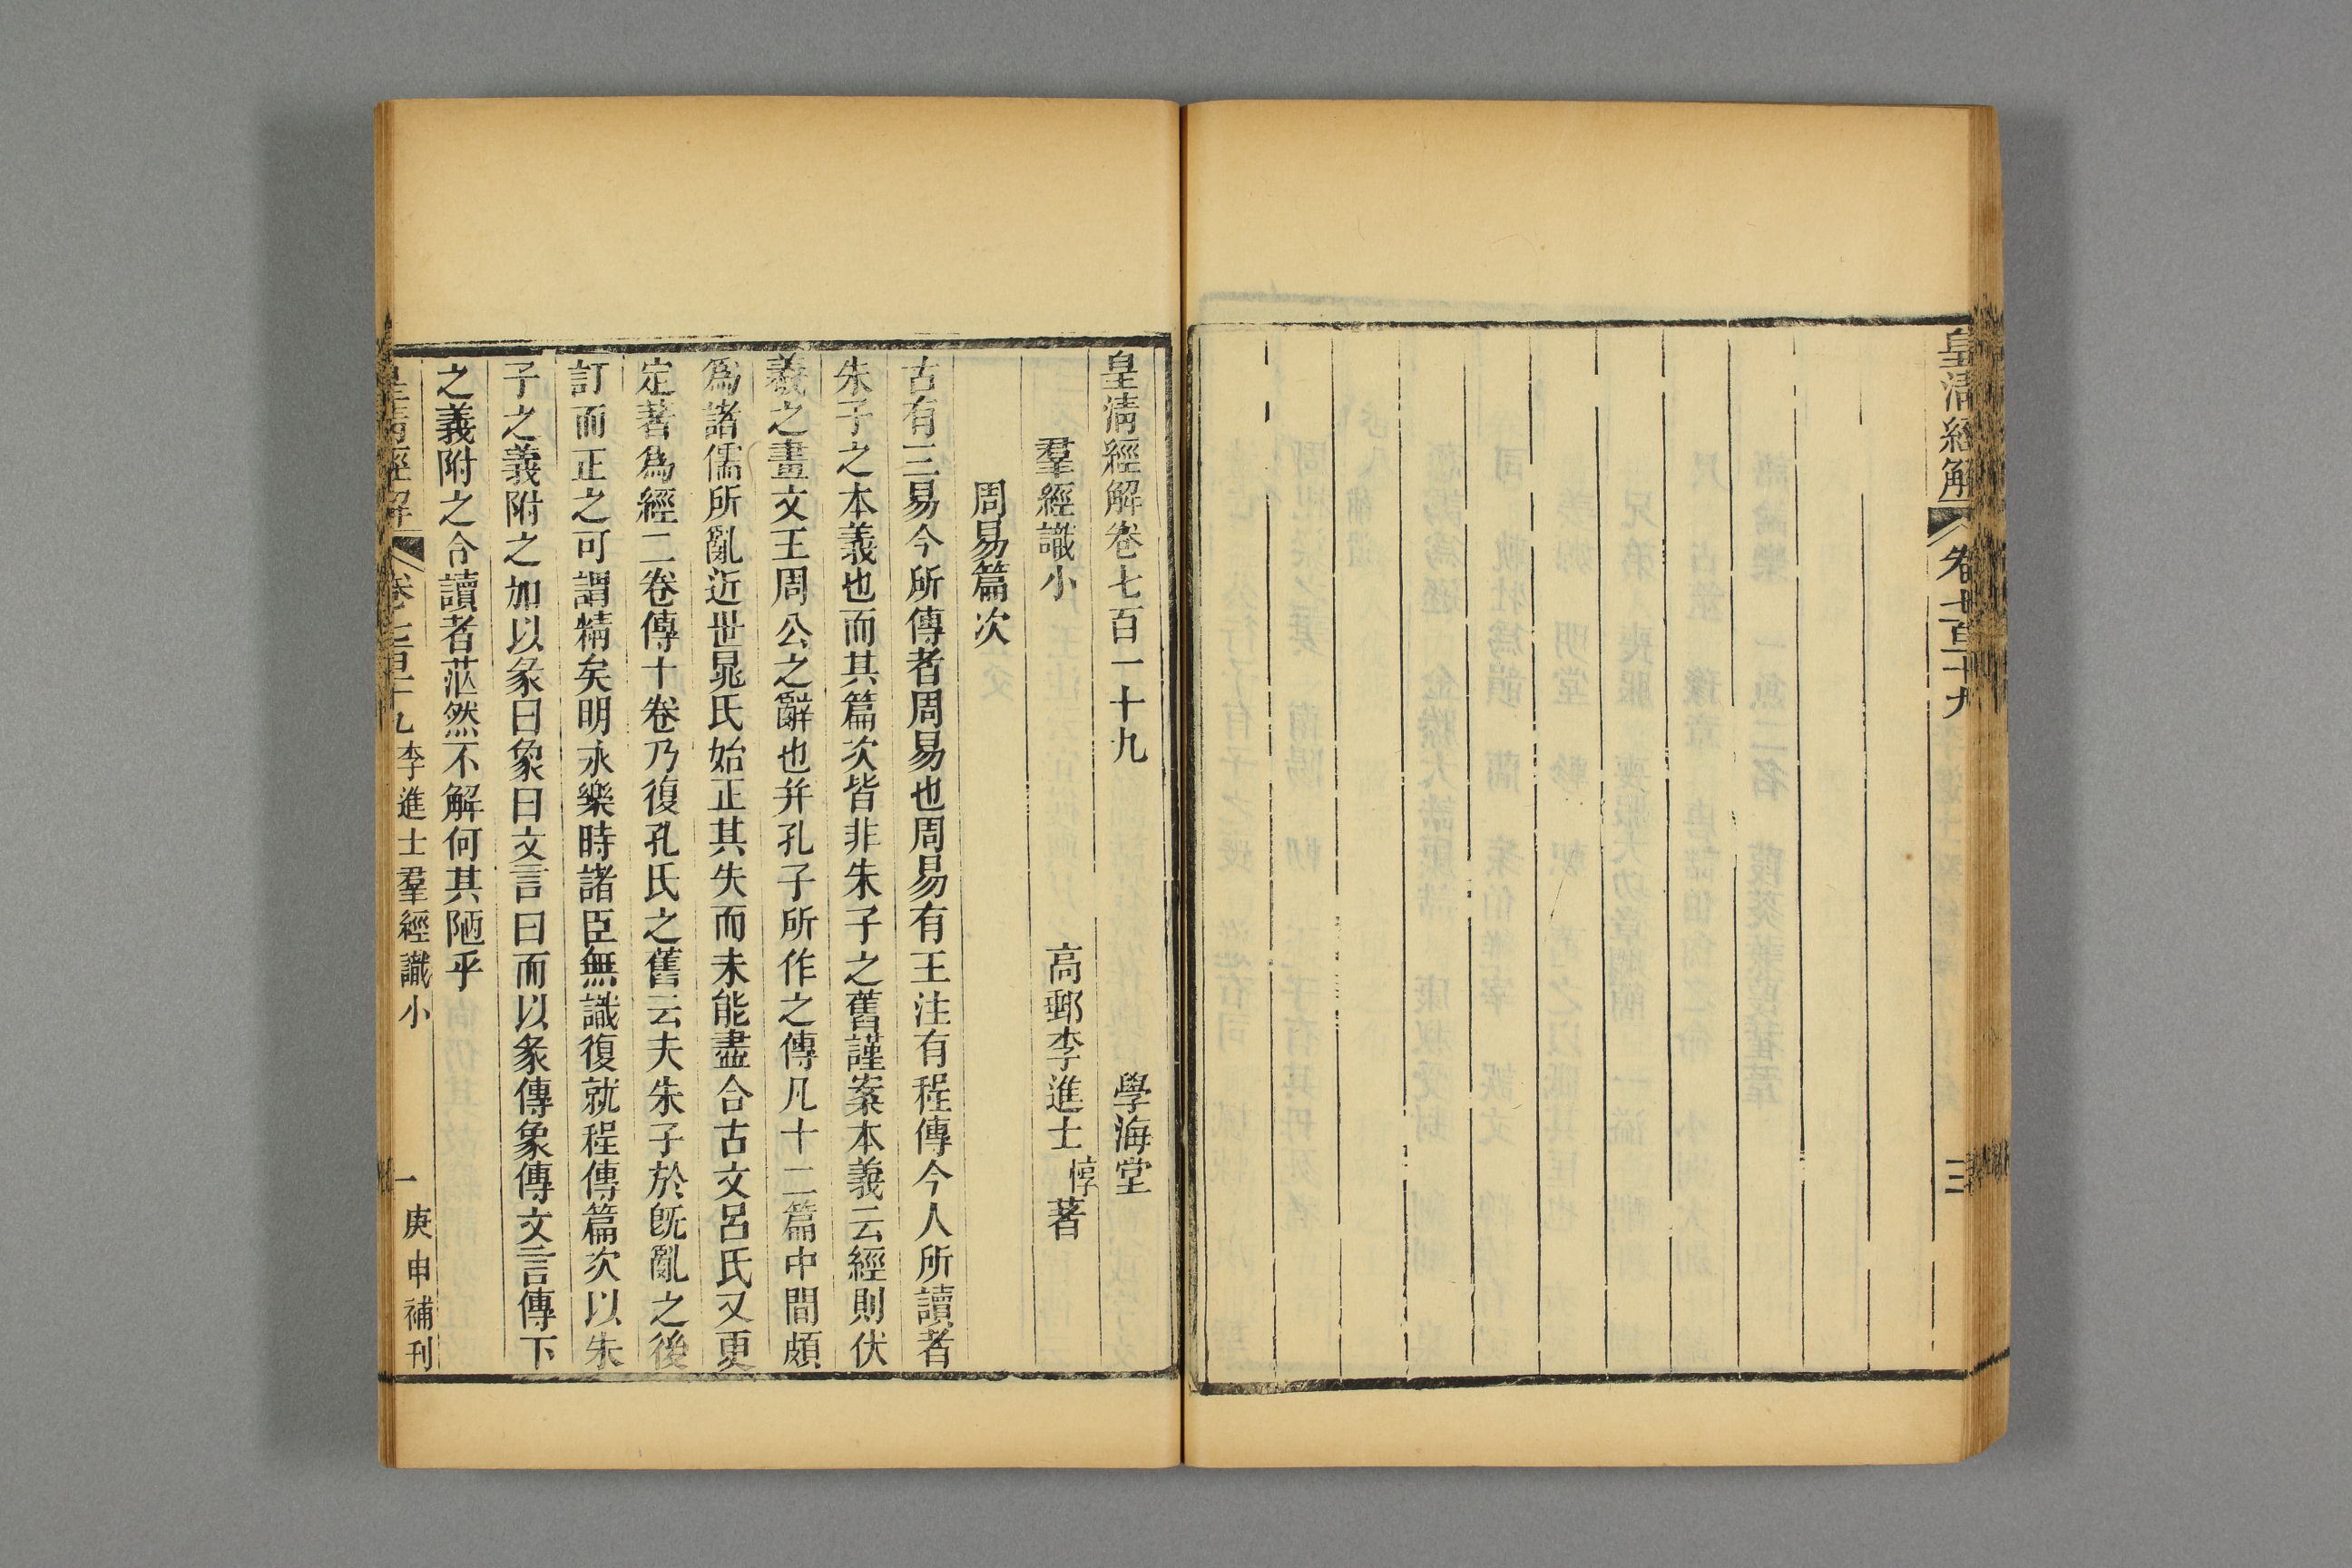 皇清經解
卷七百十九
三
皇清經解卷七百一十九
學海堂
羣經識小
高郵李進士惇著
周易篇次
古有三易今所傳者周易也周易有王注有程傳今人所讀者
朱子之本義也而其篇次皆非朱子之舊謹案本義云經則伏
羲之畫文王周公之辭也幷孔子所作之傳凡十二篇中間頗
爲諸儒所亂近世晁氏始正其失而未能盡合古文呂氏又更
定著爲經二卷傳十卷乃復孔氏之舊云夫朱子於旣亂之後
訂而正之可謂精矣明永樂時諸臣無識復就程傳篇次以朱
子之義附之加以彖曰象曰文言曰而以彖傳象傳文言傳下
之義附之令讀者茫然不解何其陋乎
皇清經解
卷七百十九
李進士羣經識小
一
庚申補刊